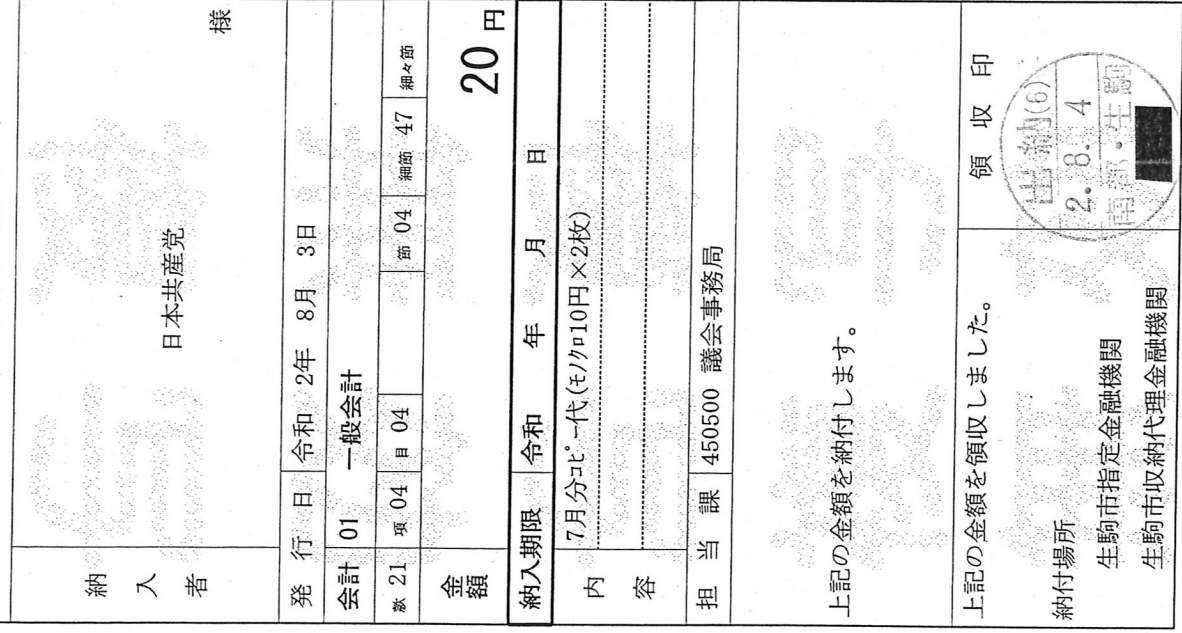 納入者 日本共産党 様
発行日 令和 2年 8月 3日
会計 01 一般会計
款 21 項 04 目 04 節 04 細節 47 細々節
金額 20 円
納入期限 令和 年 月 日
内容 7月分コピー代(モノクロ10円×2枚)
担当課 450500 議会事務局
上記の金額を納付します。
上記の金額を領収しました。
納付場所
生駒市指定金融機関
生駒市収納代理金融機関
領収印
出納(6)
2.8.4
南都・生駒